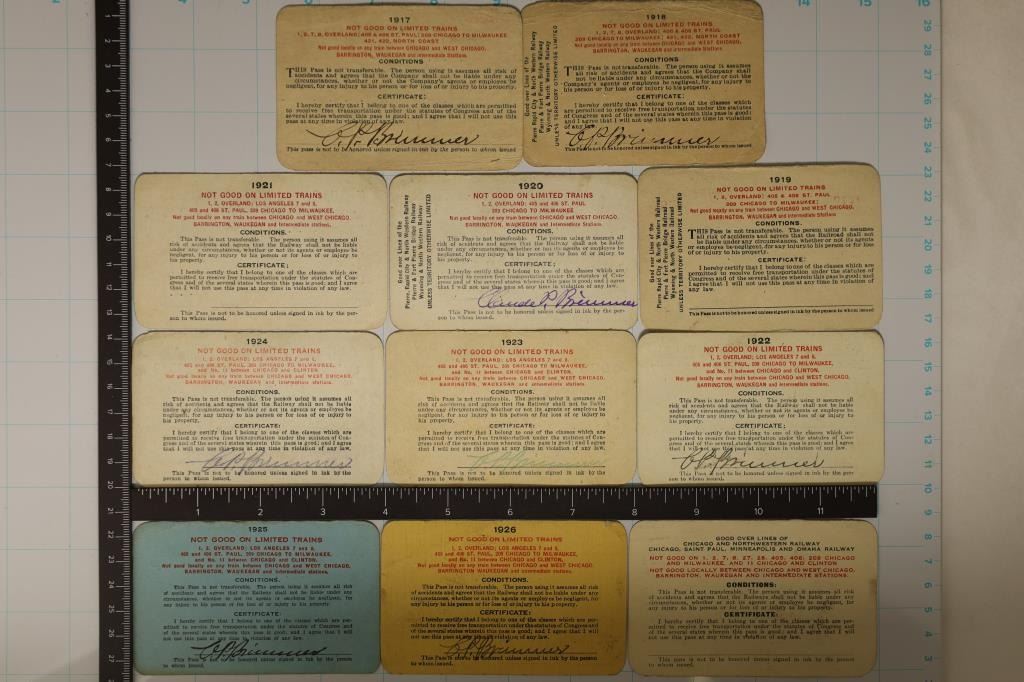 1917
NOT GOOD ON LIMITED TRAINS
1, 2, 7, 8, OVERLAND; 405 & 406 ST. PAUL; 209 CHICAGO TO MILWAUKEE
421, 422, NORTH COAST
Not good locally on any train between CHICAGO and WEST CHICAGO,
BARRINGTON, WAUKEGAN and intermediate Stations.
CONDITIONS
THIS Pass is not transferable. The person using it assumes all risk of
accidents and agrees that the Company shall not be liable under any
circumstances, whether or not the Company's agents or employes be
negligent, for any injury to his person or for loss of or injury to his property.
CERTIFICATE:
I hereby certify that I belong to one of the classes which are permitted
to receive free transportation under the statutes of Congress and of the
several states wherein this pass is good; and I agree that I will not use this
pass at any time in violation of any law.
C. P. Brimmer
This pass is not to be honored unless signed in ink by the person to whom issued
1918
NOT GOOD ON LIMITED TRAINS
1, 2, 7, 8, OVERLAND; 405 & 406 ST. PAUL
209 CHICAGO TO MILWAUKEE; 421, 422, NORTH COAST
Not good locally on any train between CHICAGO and WEST CHICAGO,
BARRINGTON, WAUKEGAN and intermediate Stations
Good over Lines of the
Pierre Rapid City & North Western Railway
Pierre & Fort Pierre Bridge Railway
Wyoming & North Western Railway
UNLESS TERRITORY OTHERWISE LIMITED
CONDITIONS
THIS Pass is not transferable. The person using it assumes
all risk of accidents and agrees that the Company shall
not be liable under any circumstances, whether or not the
Company's agents or employes be negligent, for any injury to
his person or for loss of or injury to his property.
CERTIFICATE:
I hereby certify that I belong to one of the classes which are
permitted to receive free transportation under the statutes
of Congress and of the several states wherein this pass is good;
and I agree that I will not use this pass at any time in violation
of any law.
C. P. Brimmer
This Pass is not to be honored unless signed in ink by the person to whom issued.
1921
NOT GOOD ON LIMITED TRAINS
1, 2, OVERLAND; LOS ANGELES 7 and 8,
405 and 406 ST. PAUL, 209 CHICAGO TO MILWAUKEE.
Not good locally on any train between CHICAGO and WEST CHICAGO,
BARRINGTON, WAUKEGAN and intermediate Stations.
CONDITIONS.
This Pass is not transferable. The person using it assumes all
risk of accidents and agrees that the Railway shall not be liable
under any circumstances, whether or not its agents or employes be
negligent, for any injury to his person or for loss of or injury to
his property.
CERTIFICATE:
I hereby certify that I belong to one of the classes which are
permitted to receive free transportation under the statutes of Con-
gress and of the several states wherein this pass is good; and I agree
that I will not use this pass at any time in violation of any law.
This Pass is not to be honored unless signed in ink by the person
to whom issued.
1920
NOT GOOD ON LIMITED TRAINS
1, 2, OVERLAND; 405 and 406 ST. PAUL
209 CHICAGO TO MILWAUKEE
Not good locally on any train between CHICAGO and WEST CHICAGO,
BARRINGTON, WAUKEGAN and intermediate Stations
Good over Lines of the
Pierre Rapid City & North Western Railway
Pierre & Fort Pierre Bridge Railway
Wyoming & North Western Railway
UNLESS TERRITORY OTHERWISE LIMITED
CONDITIONS.
This Pass is not transferable. The person using it assumes all
risk of accidents and agrees that the Railroad shall not be liable
under any circumstances, whether or not its agents or employes be
negligent, for any injury to his person or for loss of or injury to
his property.
CERTIFICATE;
I hereby certify that I belong to one of the classes which are
permitted to receive free transportation under the statutes of Con-
gress and of the several states wherein this pass is good; and I agree
that I will not use this pass at any time in violation of any law.
Claude P. Brimmer
This Pass is not to be honored unless signed in ink by the person
to whom issued.
1919
NOT GOOD ON LIMITED TRAINS
1, 2, OVERLAND; 405 & 406 ST. PAUL
209 CHICAGO TO MILWAUKEE;
Not good locally on any train between CHICAGO and WEST CHICAGO,
BARRINGTON, WAUKEGAN and intermediate Stations
Good over Lines of the
Pierre Rapid City & North Western Railroad
Pierre & Fort Pierre Bridge Railroad
Wyoming & North Western Railroad
UNLESS TERRITORY OTHERWISE LIMITED
CONDITIONS.
THIS Pass is not transferable. The person using it assumes all
risk of accidents and agrees that the Railroad shall not be
liable under any circumstances, whether or not its agents
or employes be negligent, for any injury to his person or for loss
of or injury to his property.
CERTIFICATE:
I hereby certify that I belong to one of the classes which are
permitted to receive free transportation under the statutes of
Congress and of the several states wherein this pass is good;
and I agree that I will not use this pass at any time in violation
of any law.
This Pass is not to be honored unless signed in ink by the person to whom issued
1924
NOT GOOD ON LIMITED TRAINS
1, 2, OVERLAND; LOS ANGELES 7 and 8,
405 and 406 ST. PAUL, 209 CHICAGO TO MILWAUKEE,
and No. 11 between CHICAGO and CLINTON.
Not good locally on any train between CHICAGO and WEST CHICAGO,
BARRINGTON, WAUKEGAN and intermediate stations.
CONDITIONS.
This Pass is not transferable. The person using it assumes all
risk of accidents and agrees that the Railway shall not be liable
under any circumstances, whether or not its agents or employes be
negligent, for any injury to his person or for loss of or injury to
his property.
CERTIFICATE:
I hereby certify that I belong to one of the classes which are
permitted to receive free transportation under the statutes of Con-
gress and of the several states wherein this pass is good; and I agree
that I will not use this pass at any time in violation of any law.
C. P. Brimmer
This Pass is not to be honored unless signed in ink by the
person to whom issued.
1923
NOT GOOD ON LIMITED TRAINS
1, 2, OVERLAND; LOS ANGELES 7 and 8,
405 and 406 ST. PAUL, 209 CHICAGO TO MILWAUKEE,
and No. 11 between CHICAGO and CLINTON.
Not good locally on any train between CHICAGO and WEST CHICAGO,
BARRINGTON, WAUKEGAN and intermediate stations.
CONDITIONS.
This Pass is not transferable. The person using it assumes all
risk of accidents and agrees that the Railway shall not be liable
under any circumstances, whether or not its agents or employes be
negligent, for any injury to his person or for loss of or injury to
his property.
CERTIFICATE:
I hereby certify that I belong to one of the classes which are
permitted to receive free transportation under the statutes of Con-
gress and of the several states wherein this pass is good; and I agree
that I will not use this pass at any time in violation of any law.
This Pass is not to be honored unless signed in ink by the
person to whom issued.
1922
NOT GOOD ON LIMITED TRAINS
1, 2, OVERLAND; LOS ANGELES 7 and 8,
405 and 406 ST. PAUL, 209 CHICAGO TO MILWAUKEE,
and No. 11 between CHICAGO and CLINTON.
Not good locally on any train between CHICAGO and WEST CHICAGO,
BARRINGTON, WAUKEGAN and intermediate stations.
CONDITIONS.
This Pass is not transferable. The person using it assumes all
risk of accidents and agrees that the Railway shall not be liable
under any circumstances, whether or not its agents or employes be
negligent, for any injury to his person or for loss of or injury to
his property.
CERTIFICATE:
I hereby certify that I belong to one of the classes which are
permitted to receive free transportation under the statutes of Con-
gress and of the several states wherein this pass is good; and I agree
that I will not use this pass at any time in violation of any law.
C. P. Brimmer
This Pass is not to be honored unless signed in ink by the person
to whom issued.
1 2 3 4 5 6 7 8 9 10 11
1925
NOT GOOD ON LIMITED TRAINS
1, 2, OVERLAND; LOS ANGELES 7 and 8,
405 and 406 ST. PAUL, 209 CHICAGO TO MILWAUKEE,
and No. 11 between CHICAGO and CLINTON.
Not good locally on any train between CHICAGO and WEST CHICAGO,
BARRINGTON, WAUKEGAN and intermediate stations.
CONDITIONS.
This Pass is not transferable. The person using it assumes all risk
of accidents and agrees that the Railway shall not be liable under any
circumstances, whether or not its agents or employes be negligent,
for any injury to his person or for loss of or injury to his property.
CERTIFICATE:
I hereby certify that I belong to one of the classes which are per-
mitted to receive free transportation under the statutes of Congress and
of the several states wherein this pass is good; and I agree that I will
not use this pass at any time in violation of any law.
C. P. Brimmer
This Pass is not to be honored unless signed in ink by the person
to whom issued.
1926
NOT GOOD ON LIMITED TRAINS
1, 2, OVERLAND; LOS ANGELES 7 and 8,
405 and 406 ST. PAUL, 209 CHICAGO TO MILWAUKEE,
and No. 11 between CHICAGO and CLINTON.
Not good locally on any train between CHICAGO and WEST CHICAGO,
BARRINGTON, WAUKEGAN and intermediate stations.
CONDITIONS.
This Pass is not transferable. The person using it assumes all risk
of accidents and agrees that the Railway shall not be liable under any
circumstances, whether or not its agents or employes be negligent, for
any injury to his person or for loss of or injury to his property.
CERTIFICATE:
I hereby certify that I belong to one of the classes which are per-
mitted to receive free transportation under the statutes of Congress and
of the several states wherein this pass is good; and I agree that I will
not use this pass at any time in violation of any law.
C. P. Brimmer
This Pass is not to be honored unless signed in ink by the person
to whom issued.
GOOD OVER LINES OF
CHICAGO AND NORTHWESTERN RAILWAY
CHICAGO, SAINT PAUL, MINNEAPOLIS AND OMAHA RAILWAY
NOT GOOD ON 1, 2, 7, 8, 27, 28, 405, 406; 209 CHICAGO
AND MILWAUKEE, AND 11 CHICAGO AND CLINTON
NOT GOOD LOCALLY BETWEEN CHICAGO AND WEST CHICAGO,
BARRINGTON, WAUKEGAN AND INTERMEDIATE STATIONS.
CONDITIONS:
This Pass is not transferable. The person using it assumes all risk
of accidents and agrees that the Railway shall not be liable under any
circumstances, whether or not its agents or employes be negligent, for
any injury to his person or for loss of or injury to his property.
CERTIFICATE:
I hereby certify that I belong to one of the classes which are per-
mitted to receive free transportation under the statutes of Congress and
of the several states wherein this pass is good; and I agree that I will
not use this pass at any time in violation of any law.
This pass is not to be honored unless signed in ink by the person
to whom issued.